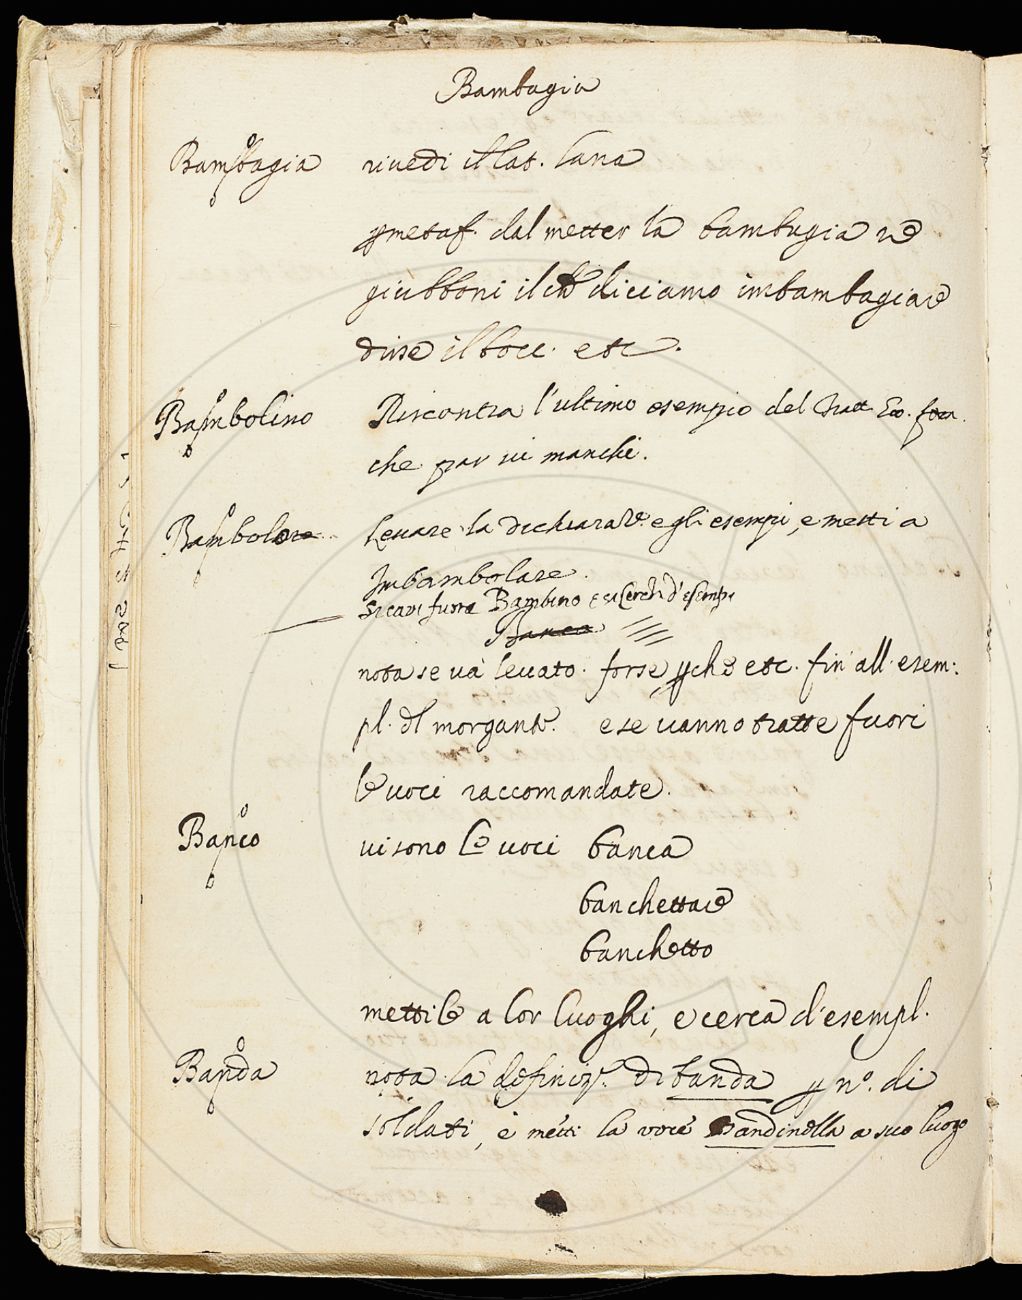 Bambagia
Bambagia rivedi il lat. lana
p metaf. dal metter la bambagia ne
giubboni il ch diciamo imbambagiare
disse il bocc. etc.
Bambolino Riscontra l'ultimo esempio del Tratt.
che par vi manchi.
Bambolore Levare la dichiaraz.e e gli esempi, e metti a
Imbambolare.
Si cavi fuora Bambino e si cerchi d'esempi
Banca
nota se và levato. forse p che etc. fin all' esem:
pl. dl morgante. e se vanno tratte fuori
le voci raccomandate.
Banco vi sono le voci banca
banchettare
banchetto
mettile a lor luoghi, e cerca d'esempl.
Banda nota la definiz.e di banda p n.o di
soldati, e metti la voce Bandinella a suo luogo